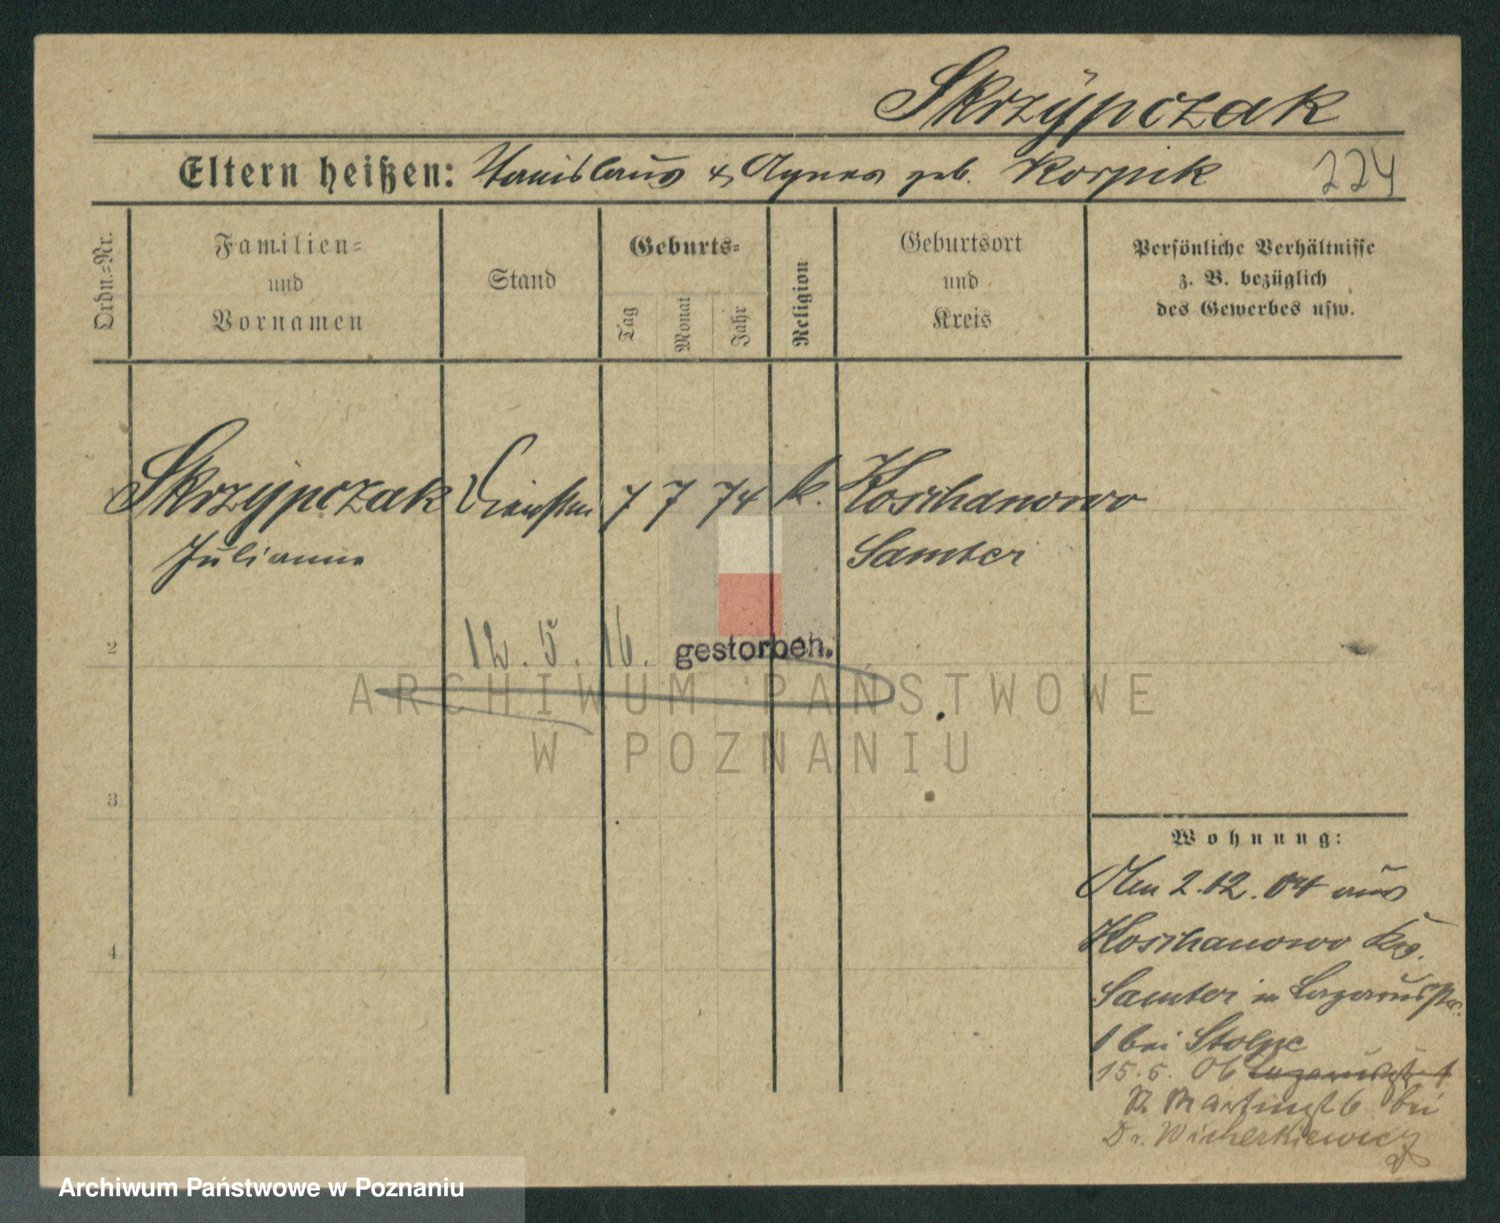 Skrzÿpczak
Eltern heißen: Stanislaus & Agnes geb. Korpik 224
Ordn.=Nr.
Familien=
und
Vornamen
Stand
Geburts=
Tag
Monat
Jahr
Religion
Geburtsort
und
Kreis
Persönliche Verhältnisse
z. B. bezüglich
des Gewerbes usw.
Skrzypczak 7 7 74 k. Koschanowo
Julianne Samter
2
12. 5. 16. gestorben.
ARCHIWUM PAŃSTWOWE
W POZNANIU
3
4
Wohnung:
2.12.04 aus
Koschanowo Krs.
Samter in Lazarusstr.
1 bei Stolpe
15.5. 06
St. Martinst 6 bei
Dr. Wicherkiewicz
Archiwum Państwowe w Poznaniu